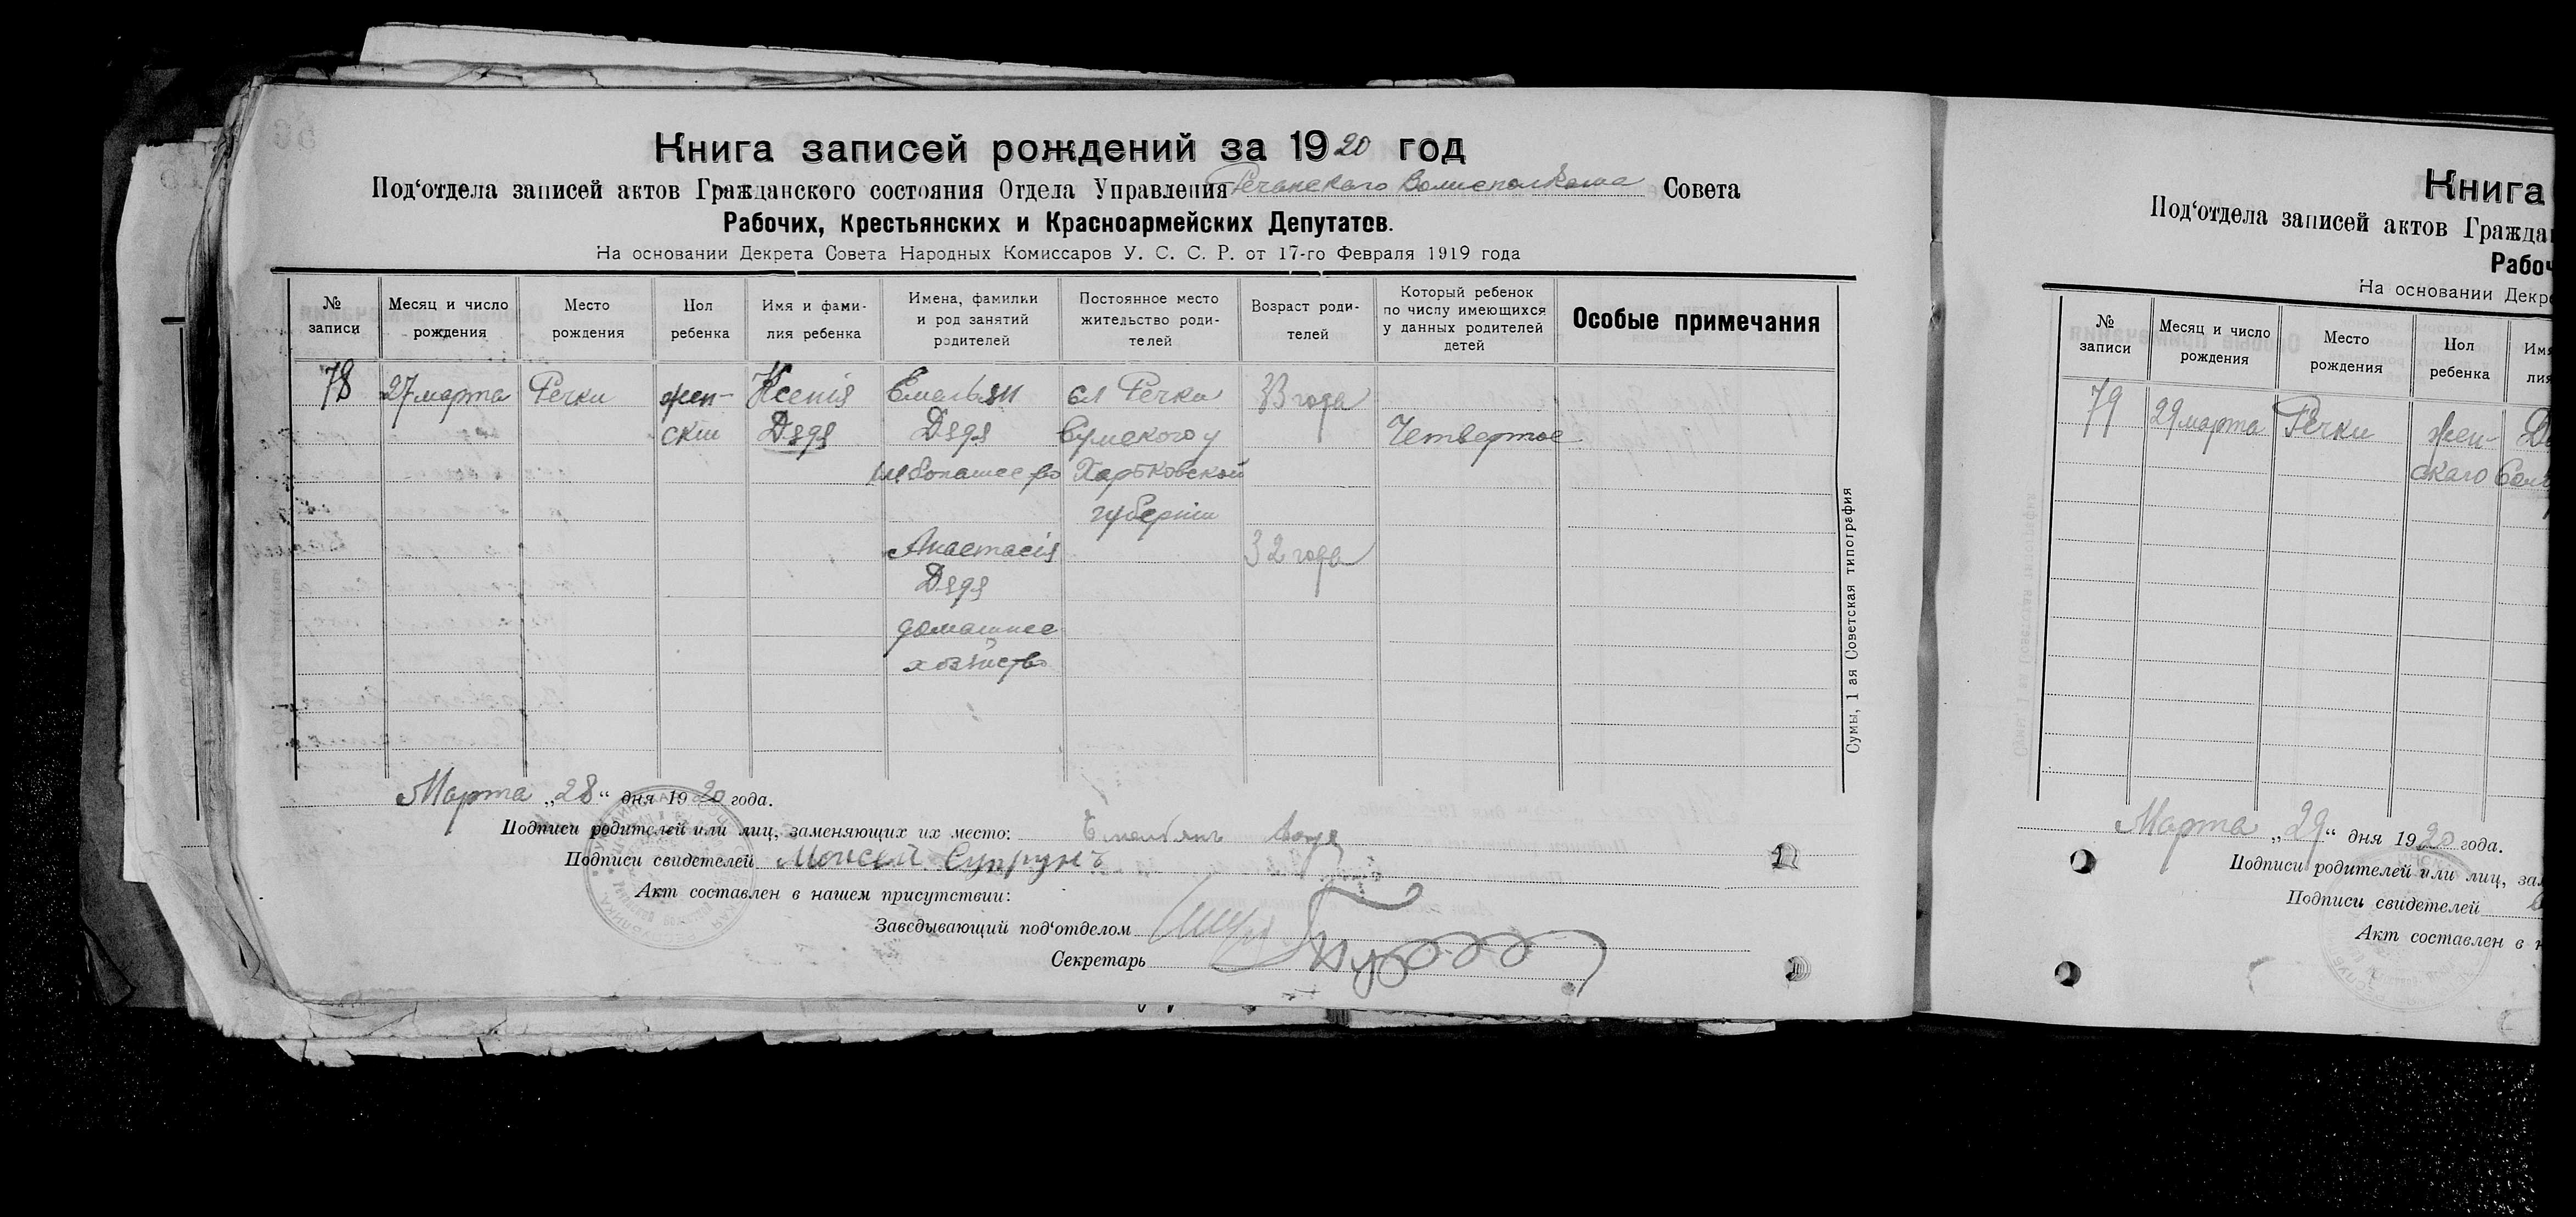 Книга записей рождений за 1920 год
Под‘отдела записей актов Гражданского состояния Отдела Управления Речанского Волисполкома Совета
Рабочих, Крестьянских и Красноармейских Депутатов.
На основании Декрета Совета Народных Комиссаров У. С. С. Р. от 17-го Февраля 1919 года
№ записи
Месяц и число рождения
Место рождения
Пол ребенка
Имя и фами- лия ребенка
Имена, фамилки и род занятий родителей
Постоянное место жительство роди- телей
Возраст роди- телей
Который ребенок по числу имеющихся у данных родителей детей
Особые примечания
78
27 марта
Речки
жен-
ски
Ксенія
Дядя
Емельян
Дядя
Анастасія
Дядя
домашнее
хозяйство
сл Речки
Сумского у
Харьковской
губерніи
33 года
32 года
Четвертое
Сумы, 1 ая Советская типография
Марта „28“ дня 1920 года.
Подписи родителей или лиц, заменяющих их место: Емельянъ Дядя
Подписи свидетелей Моисей Супрунъ
Акт составлен в нашем присутствии:
Заведывающий под‘отделом
Секретарь
Книга
Под‘отдела записей актов Гражда
Рабоч
На основании Декре
№ записи
Месяц и число рождения
Место рождения
Пол ребенка
Имя
лия
79
29 марта
Речки
жен-
скаго
Марта „29“ дня 1920 года.
Подписи родителей или лиц, зам
Подписи свидетелей
Акт составлен в н